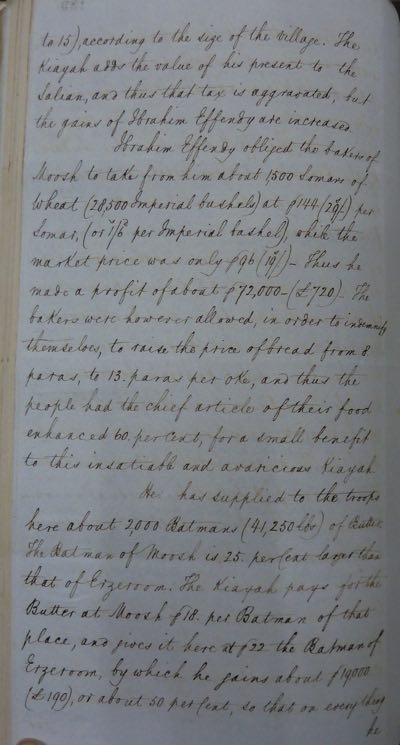 to 15), according to the size of the village. The
Kiayah adds the value of his present to the
Salian, and thus that tax is aggravated, but
the gains of Ibrahim Effendy are increased.
Ibrahim Effendy obliged the bakers of
Moosh to take from him about 1500 Somars of
Wheat (28,500 Imperial bushels) at p144 per
Somar, (or per Imperial bushel) while the
market price was only p96 – Thus he
made a profit of about p72,000 – (£720) – The
bakers were however allowed, in order to indemnify
themselves, to raise the price of bread from 8
paras, to 13. paras per oke, and thus the
people had the chief article of their food
enhanced 60. per Cent, for a small benefit
to this insatiable and avaricious Kiayah
He has supplied to the troops
here about 2,000 Batmans (41,250 lbs) of Butter.
The Batman of Moosh is 25. per Cent larger than
that of Erzeroom. The Kiayah pays for the
Butter at Moosh p18. per Batman of that
place, and gives it here at p22 the Batman of
Erzeroom, by which he gains about p19000
(£190), or about 50 per Cent, so that on every thing
he